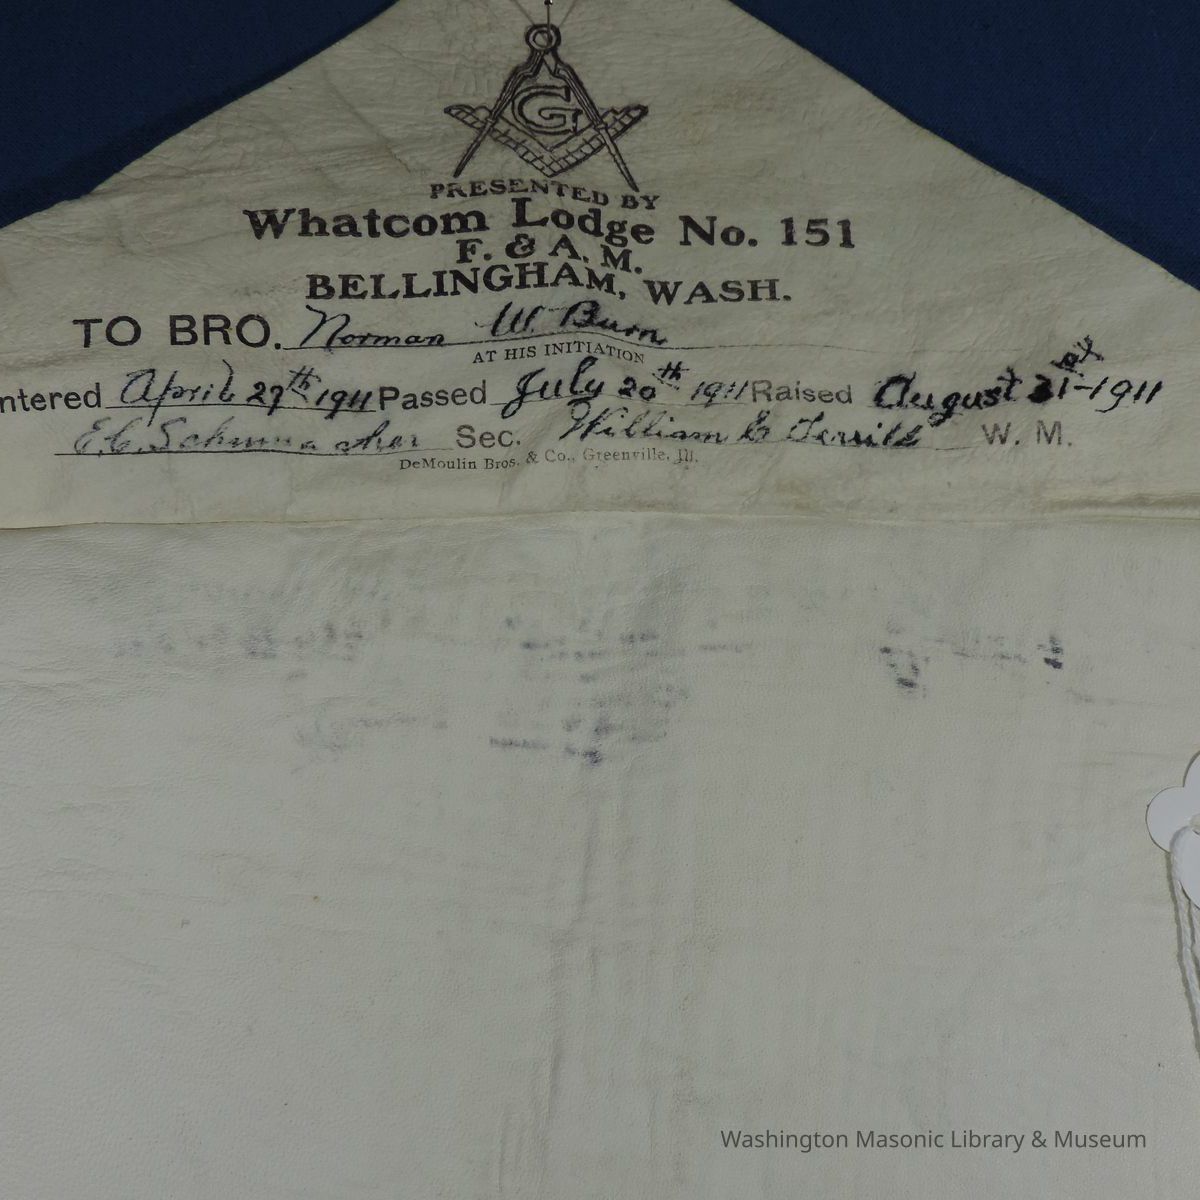 G
PRESENTED BY
Whatcom Lodge No. 151
F. & A. M.
BELLINGHAM, WASH.
TO BRO. Norman W. Burn
AT HIS INITIATION
ntered April 27th 1911 Passed July 20th 1911 Raised August 31st-1911
E. C. Schumacher Sec. William E W. M.
DeMoulin Bros. & Co., Greenville, Ill.
Washington Masonic Library & Museum